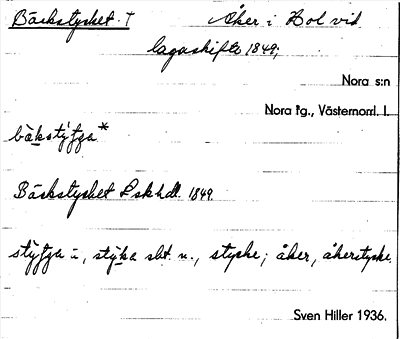 Bäckstycket. † Åker i Hol vid
laga skifte 1849;
Nora s:n
Nora tg., Västernorrl. l.
Bäckstycket Lskhdl. 1849.
sbt. n., stycke; åker, åkerstycke.
Sven Hiller 1936.